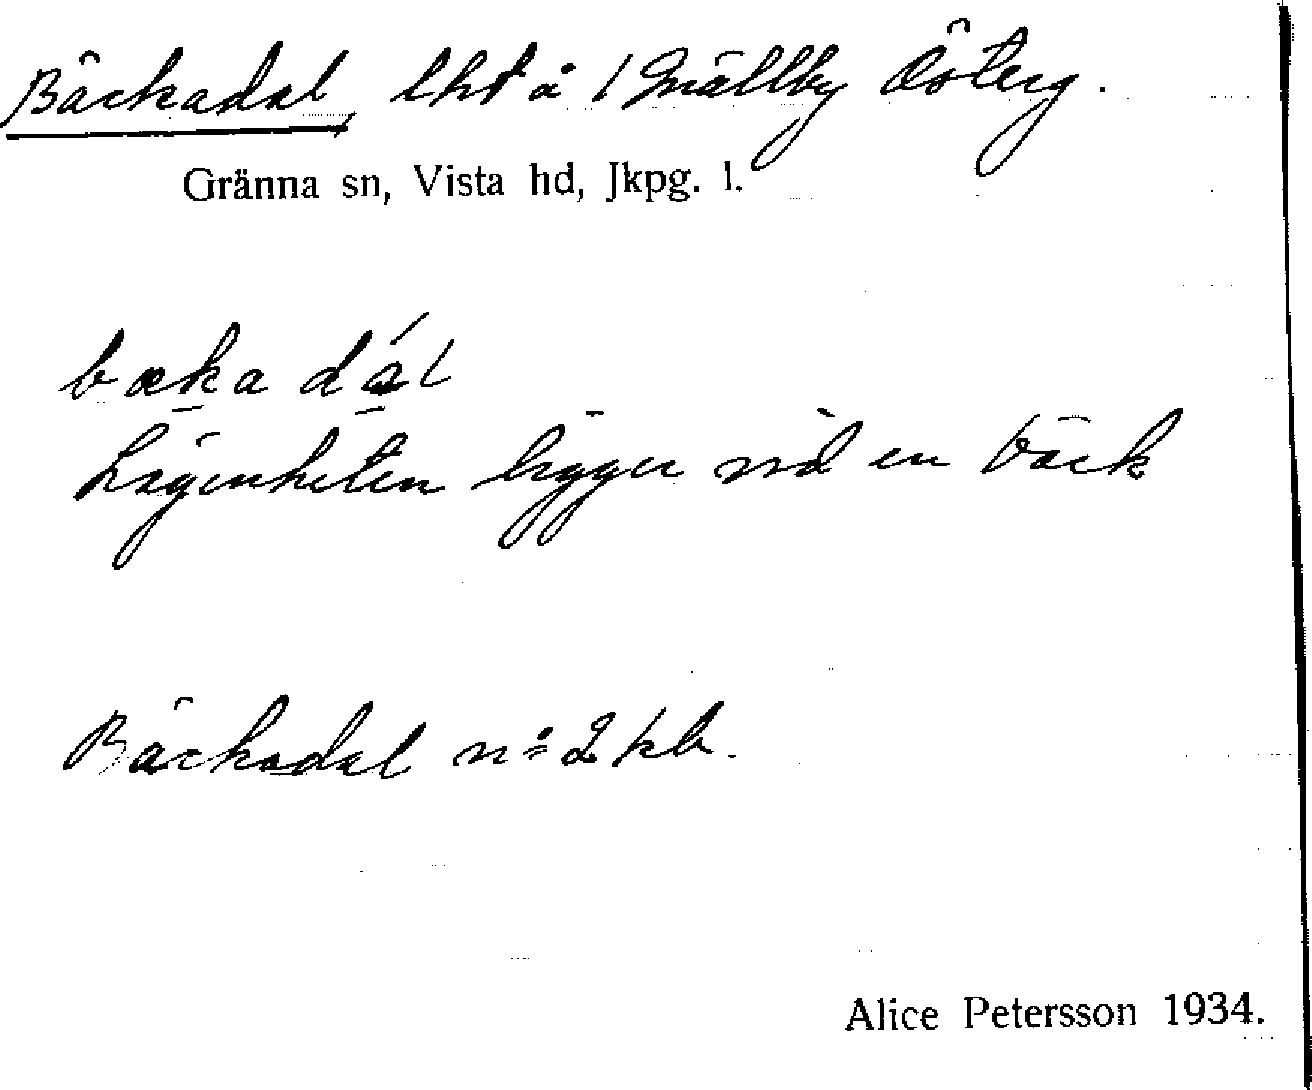 Bäckadal lht å 1 Gnällby Österg.
Gränna sn, Vista hd, Jkpg. l.
bæka dál
Lägenheten ligger vid en bäck
Bäckadal n:o 2 kb.
Alice Petersson 1934.